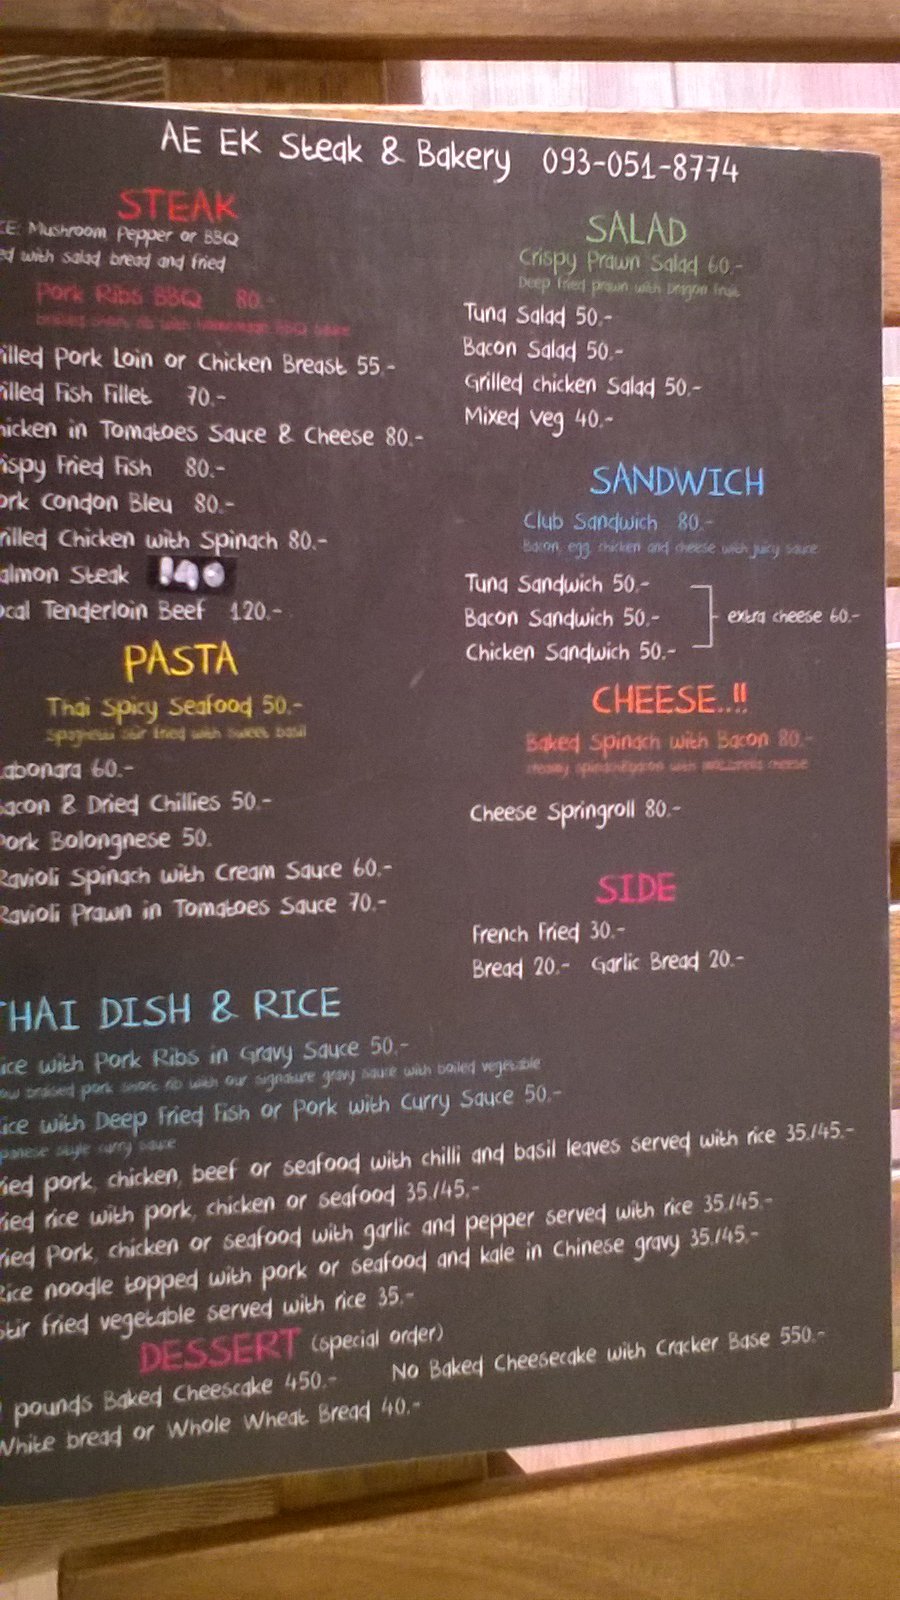 AE EK Steak & Bakery 093-051-8774
STEAK
CE: Mushroom, Pepper or BBQ
ed with salad bread and fried
Pork Ribs BBQ 80.-
illed Pork Loin or Chicken Breast 55.-
illed Fish Fillet 70.-
hicken in Tomatoes Sauce & Cheese 80.-
ispy Fried Fish 80.-
ork Condon Bleu 80.-
rilled Chicken with Spinach 80.-
almon Steak 140
ocal Tenderloin Beef 120.-
PASTA
Thai Spicy Seafood 50.-
Spaghetti stir fried with sweet basil
abonara 60.-
acon & Dried Chillies 50.-
Pork Bolongnese 50.
Ravioli Spinach with Cream Sauce 60.-
Ravioli Prawn in Tomatoes Sauce 70.-
SALAD
Crispy Prawn Salad 60.-
Deep fried prawn with Dragon fruit
Tuna Salad 50.-
Bacon Salad 50.-
Grilled chicken Salad 50.-
Mixed Veg 40.-
SANDWICH
Club Sandwich 80.-
Bacon, egg, chicken and cheese with juicy sauce
Tuna Sandwich 50.-
Bacon Sandwich 50.-
extra cheese 60.-
Chicken Sandwich 50.-
CHEESE..!!
Baked Spinach with Bacon 80.-
Cheese Springroll 80.-
SIDE
French Fried 30.-
Bread 20.- Garlic Bread 20.-
THAI DISH & RICE
ice with Pork Ribs in Gravy Sauce 50.-
ow braised pork short rib with our signature gravy sauce with boiled vegetable
ice with Deep Fried Fish or Pork with Curry Sauce 50.-
panese style curry sauce
ied pork, chicken, beef or seafood with chilli and basil leaves served with rice 35./45.-
ried rice with pork, chicken or seafood 35./45.-
ried Pork, chicken or seafood with garlic and pepper served with rice 35./45.-
Rice noodle topped with pork or seafood and kale in Chinese gravy 35./45.-
Stir fried vegetable served with rice 35.-
DESSERT (special order)
pounds Baked Cheescake 450.- No Baked Cheesecake with Cracker Base 550.-
White bread or Whole Wheat Bread 40.-